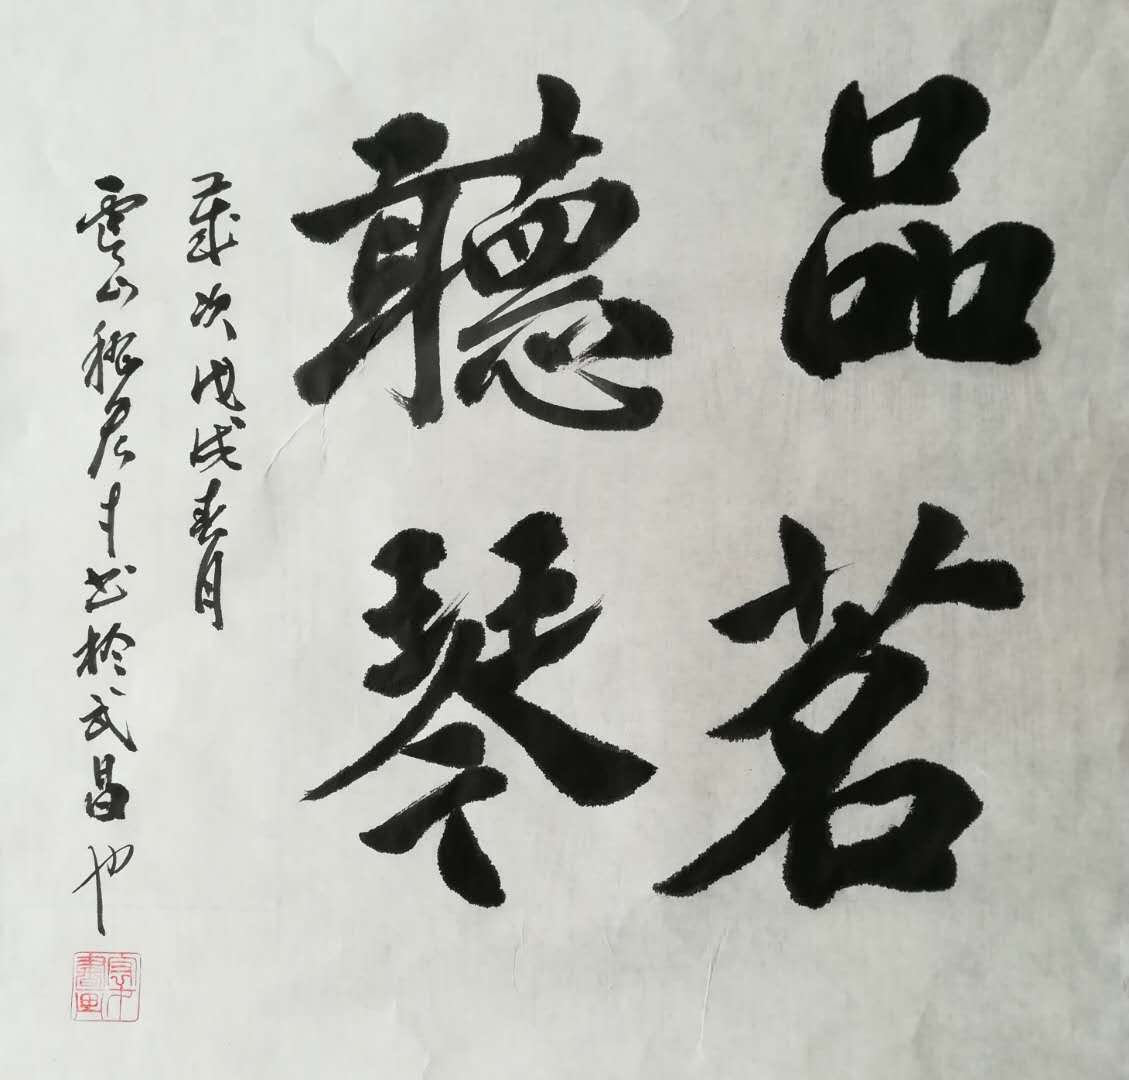 品茗
聽琴
歲次戊戌春月
雲山
書於武昌也